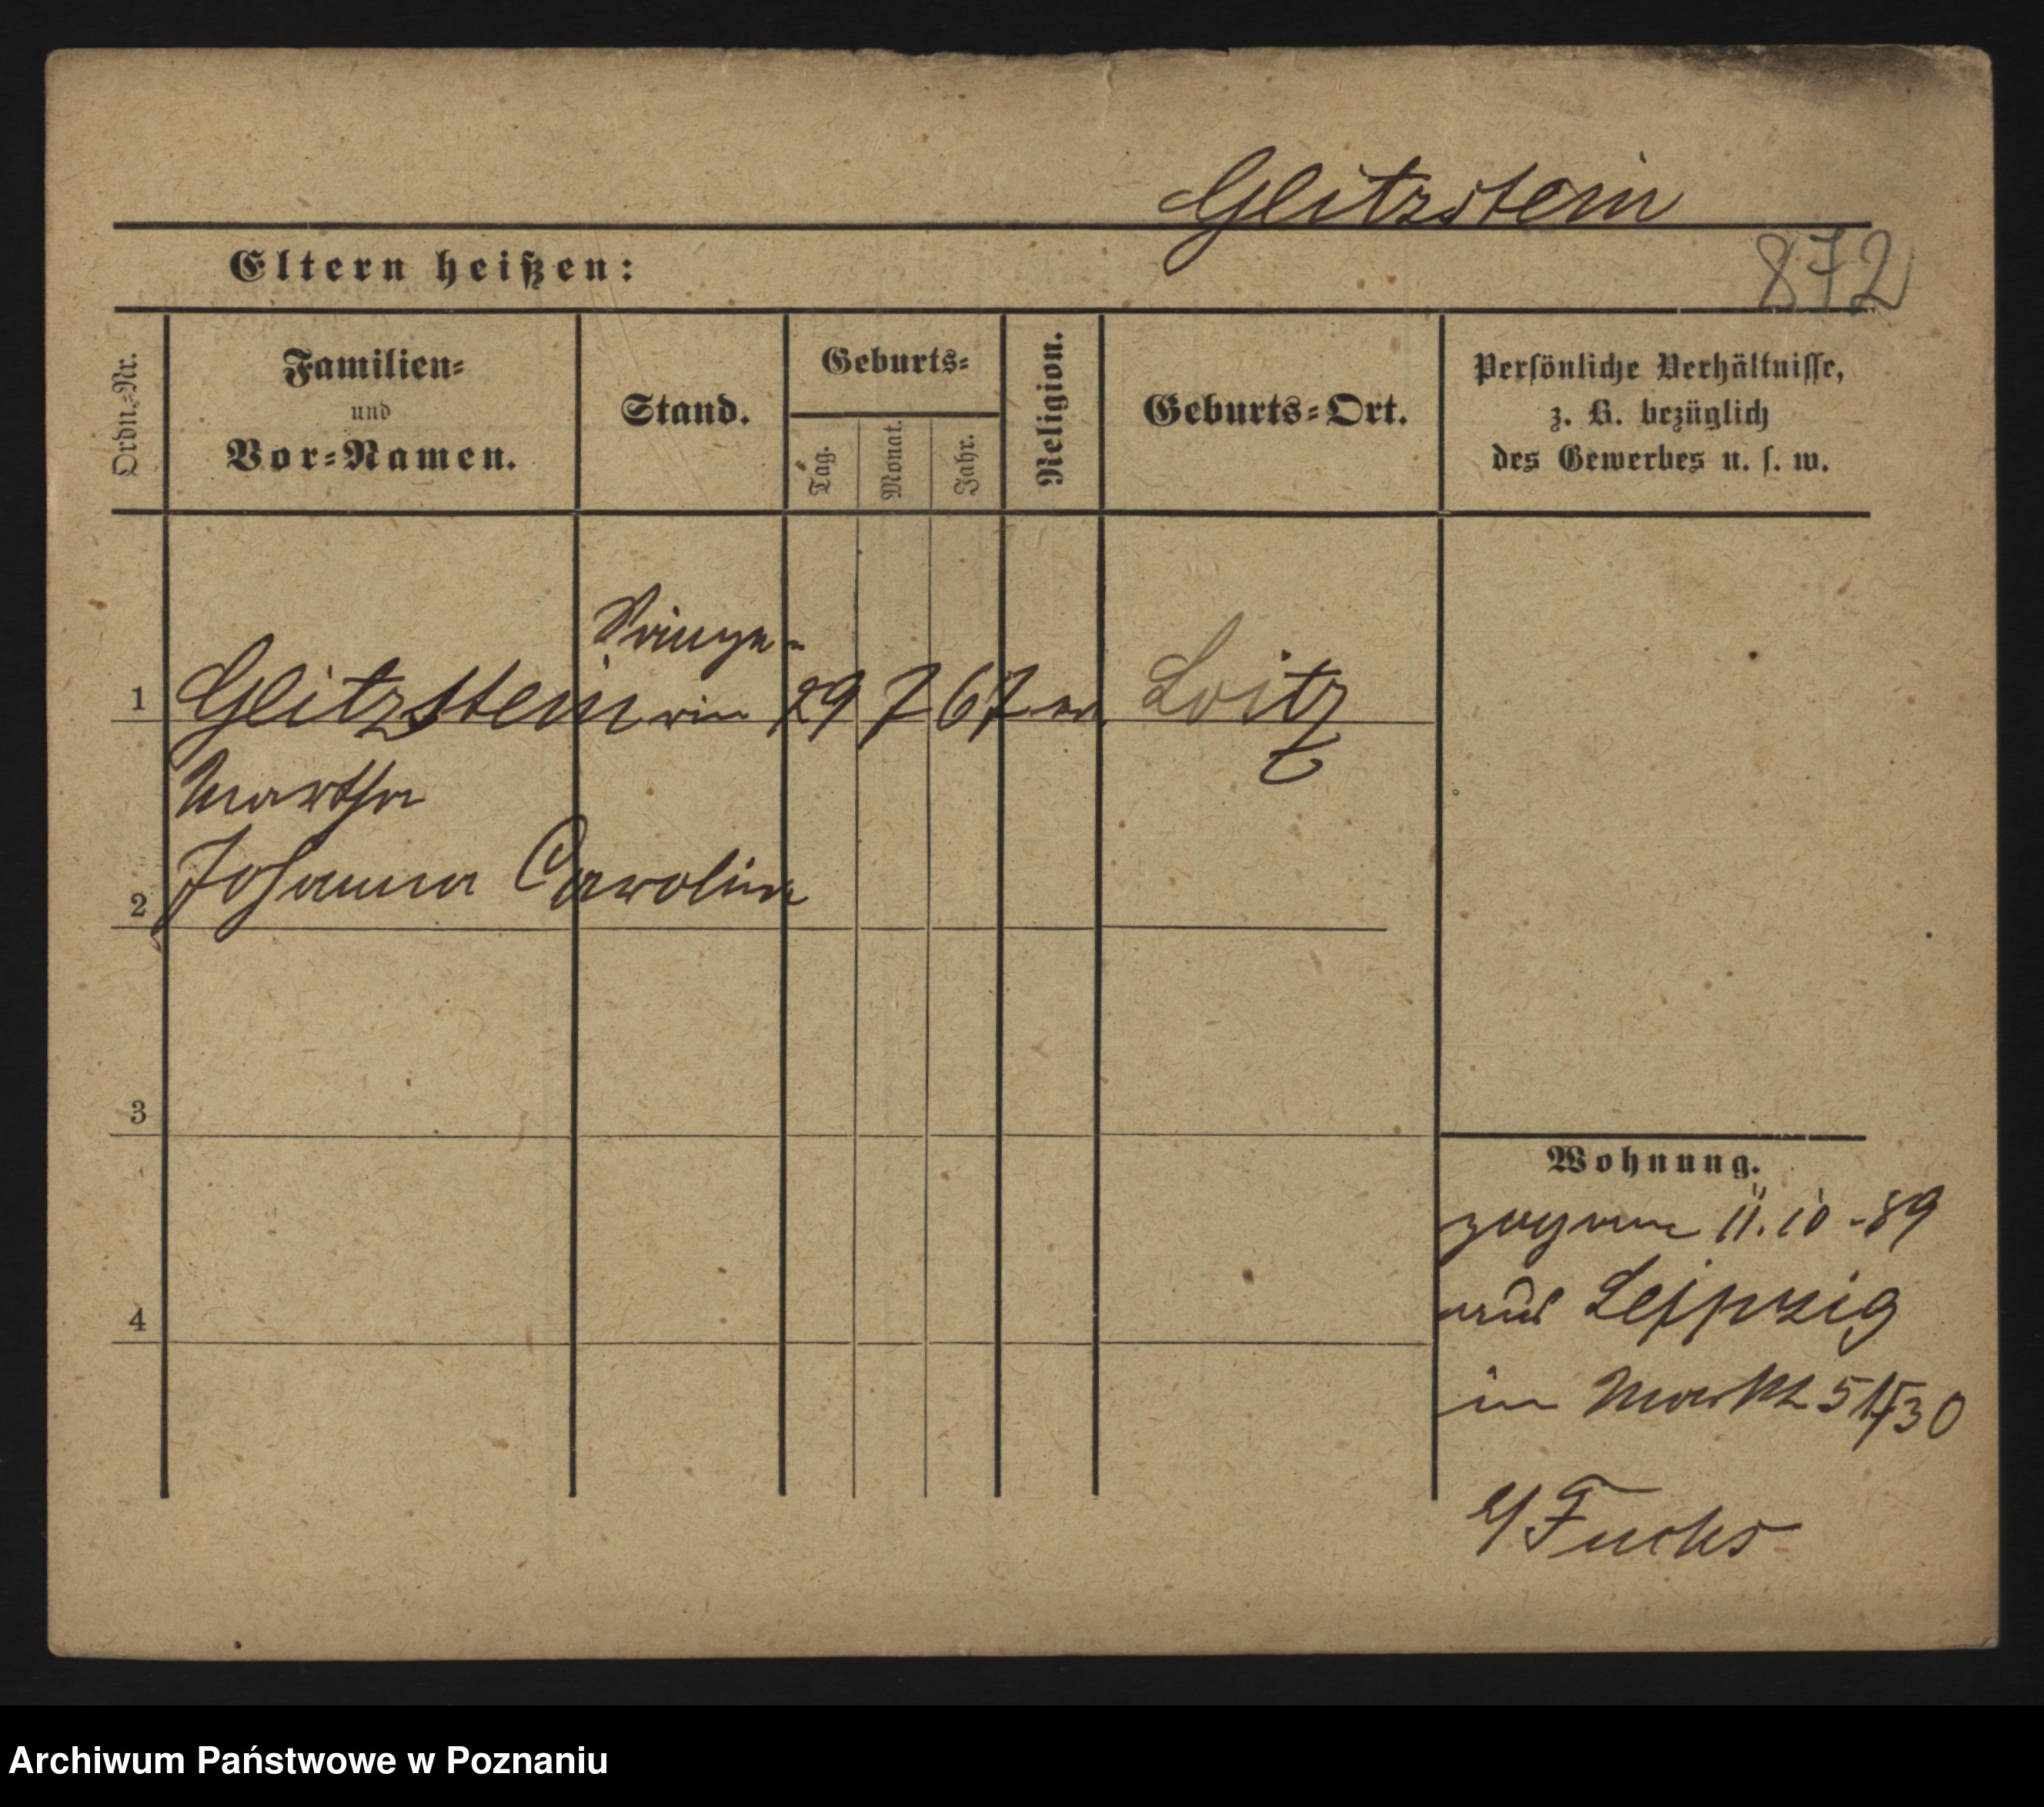 Glitzstein
Eltern heißen:
872
Ordn.-Nr.
Familien-
und
Vor-Namen.
Stand.
Geburts-
Tag.
Monat.
Jahr.
Religion.
Geburts-Ort.
Persönliche Verhältnisse,
z. B. bezüglich
des Gewerbes u. s. w.
1 Glitzstein Sänge-
rin 29 7 67 ev. Loitz
Martha
2 Johanna Carolina
3
4
Wohnung.
zog am 11. 10 - 89
aus Leipzig
in Markt 51
b/ Fuchs
Archiwum Państwowe w Poznaniu